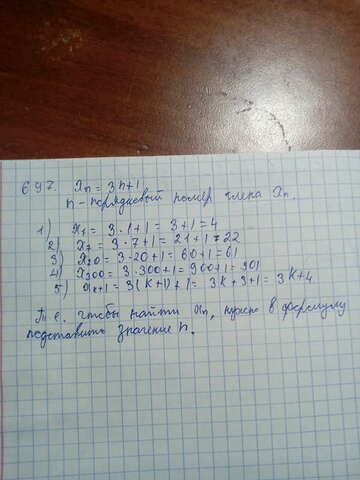 697. xn = 3n+1
n - порядковый номер члена xn.
1) x1 = 3·1+1 = 3+1 = 4
2) x7 = 3·7+1 = 21+1 = 22
3) x20 = 3·20+1 = 60+1 = 61
4) x300 = 3·300+1 = 900+1 = 901
5) xk+1 = 3(k+1)+1 = 3k+3+1 = 3k+4
Т.е. чтобы найти xn, нужно в формулу
подставить значение n.